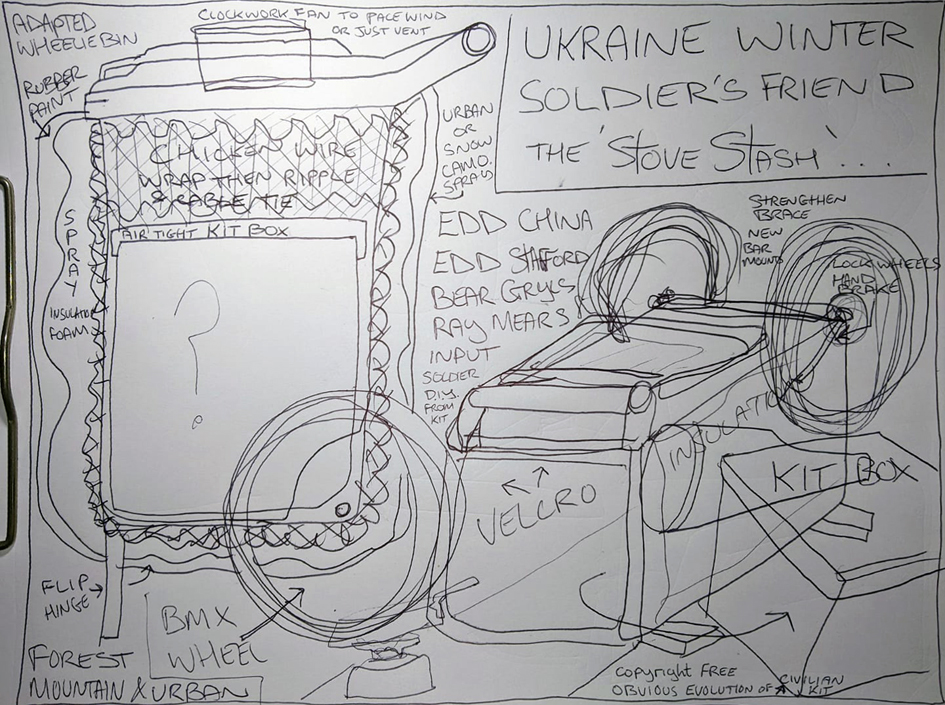 ADAPTED
WHEELIEBIN
CLOCKWORK FAN TO PACE WIND
OR JUST VENT
UKRAINE WINTER
SOLDIER'S FRIEND
THE 'STOVE STASH'...
RUBBER
PAINT
CHICKEN WIRE
WRAP THEN RIPPLE
& CABLE TIE
URBAN
OR
SNOW
CAMO.
SPRAYS
AIR TIGHT KIT BOX
?
SPRAY
FOAM
EDD CHINA
EDD STAFFORD
BEAR GRYLS
RAY MEARS
INPUT
SOLDIER
D.I.Y.
FROM
KIT
STRENGTHEN
BRACE
NEW
BAR
MOUND
LOCK WHEELS
HAND
BRAKE
INSULATION
KIT BOX
VELCRO
FLIP
HINGE
BMX
WHEEL
FOREST
MOUNTAIN & URBAN
Copyright FREE
OBVIOUS EVOLUTION OF CIVILIAN
KIT